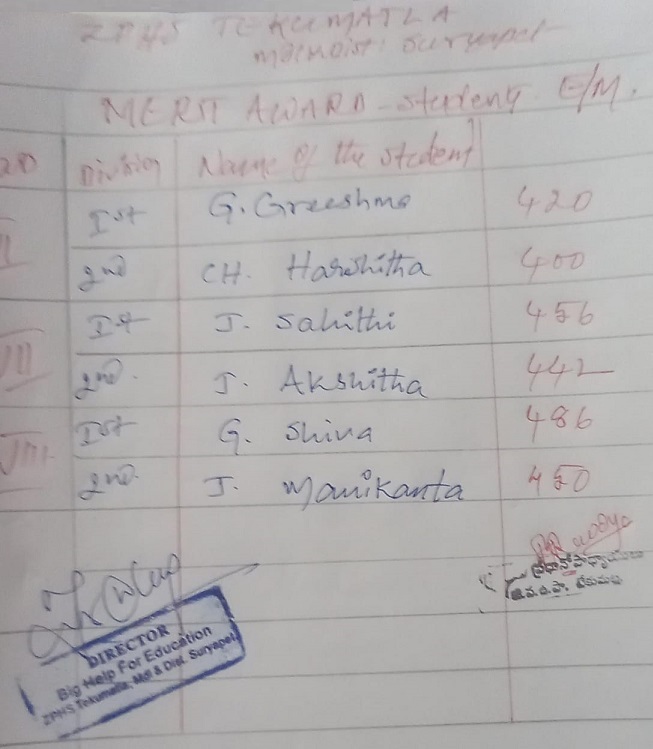 ZPHS TEKUMATLA
Mdl & Dist: Suryapet
MERIT AWARD - Students E/M.
Division Name of the student
Ist G. Greeshma 420
2nd CH. Harshitha 400
Ist J. Sahithi 456
VII 2nd. J. Akshitha 442
VIII Ist G. Shiva 486
2nd. J. Manikanta 450
ప్రధానోపాధ్యాయులు
DIRECTOR
Big Help For Education
ZPHS Tekumatla, Mdl & Dist. Suryapet